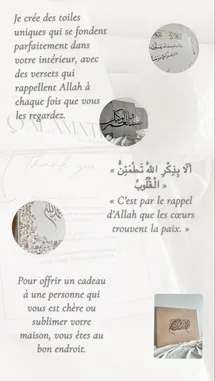 Je crée des toiles
uniques qui se fondent
parfaitement dans
votre intérieur, avec
des versets qui
rappellent Allah à
chaque fois que vous
les regardez.
« أَلَا بِذِكْرِ اللَّهِ تَطْمَئِنُّ
الْقُلُوبُ »
« C'est par le rappel
d'Allah que les cœurs
trouvent la paix. »
Pour offrir un cadeau
à une personne qui
vous est chère ou
sublimer votre
maison, vous êtes au
bon endroit.